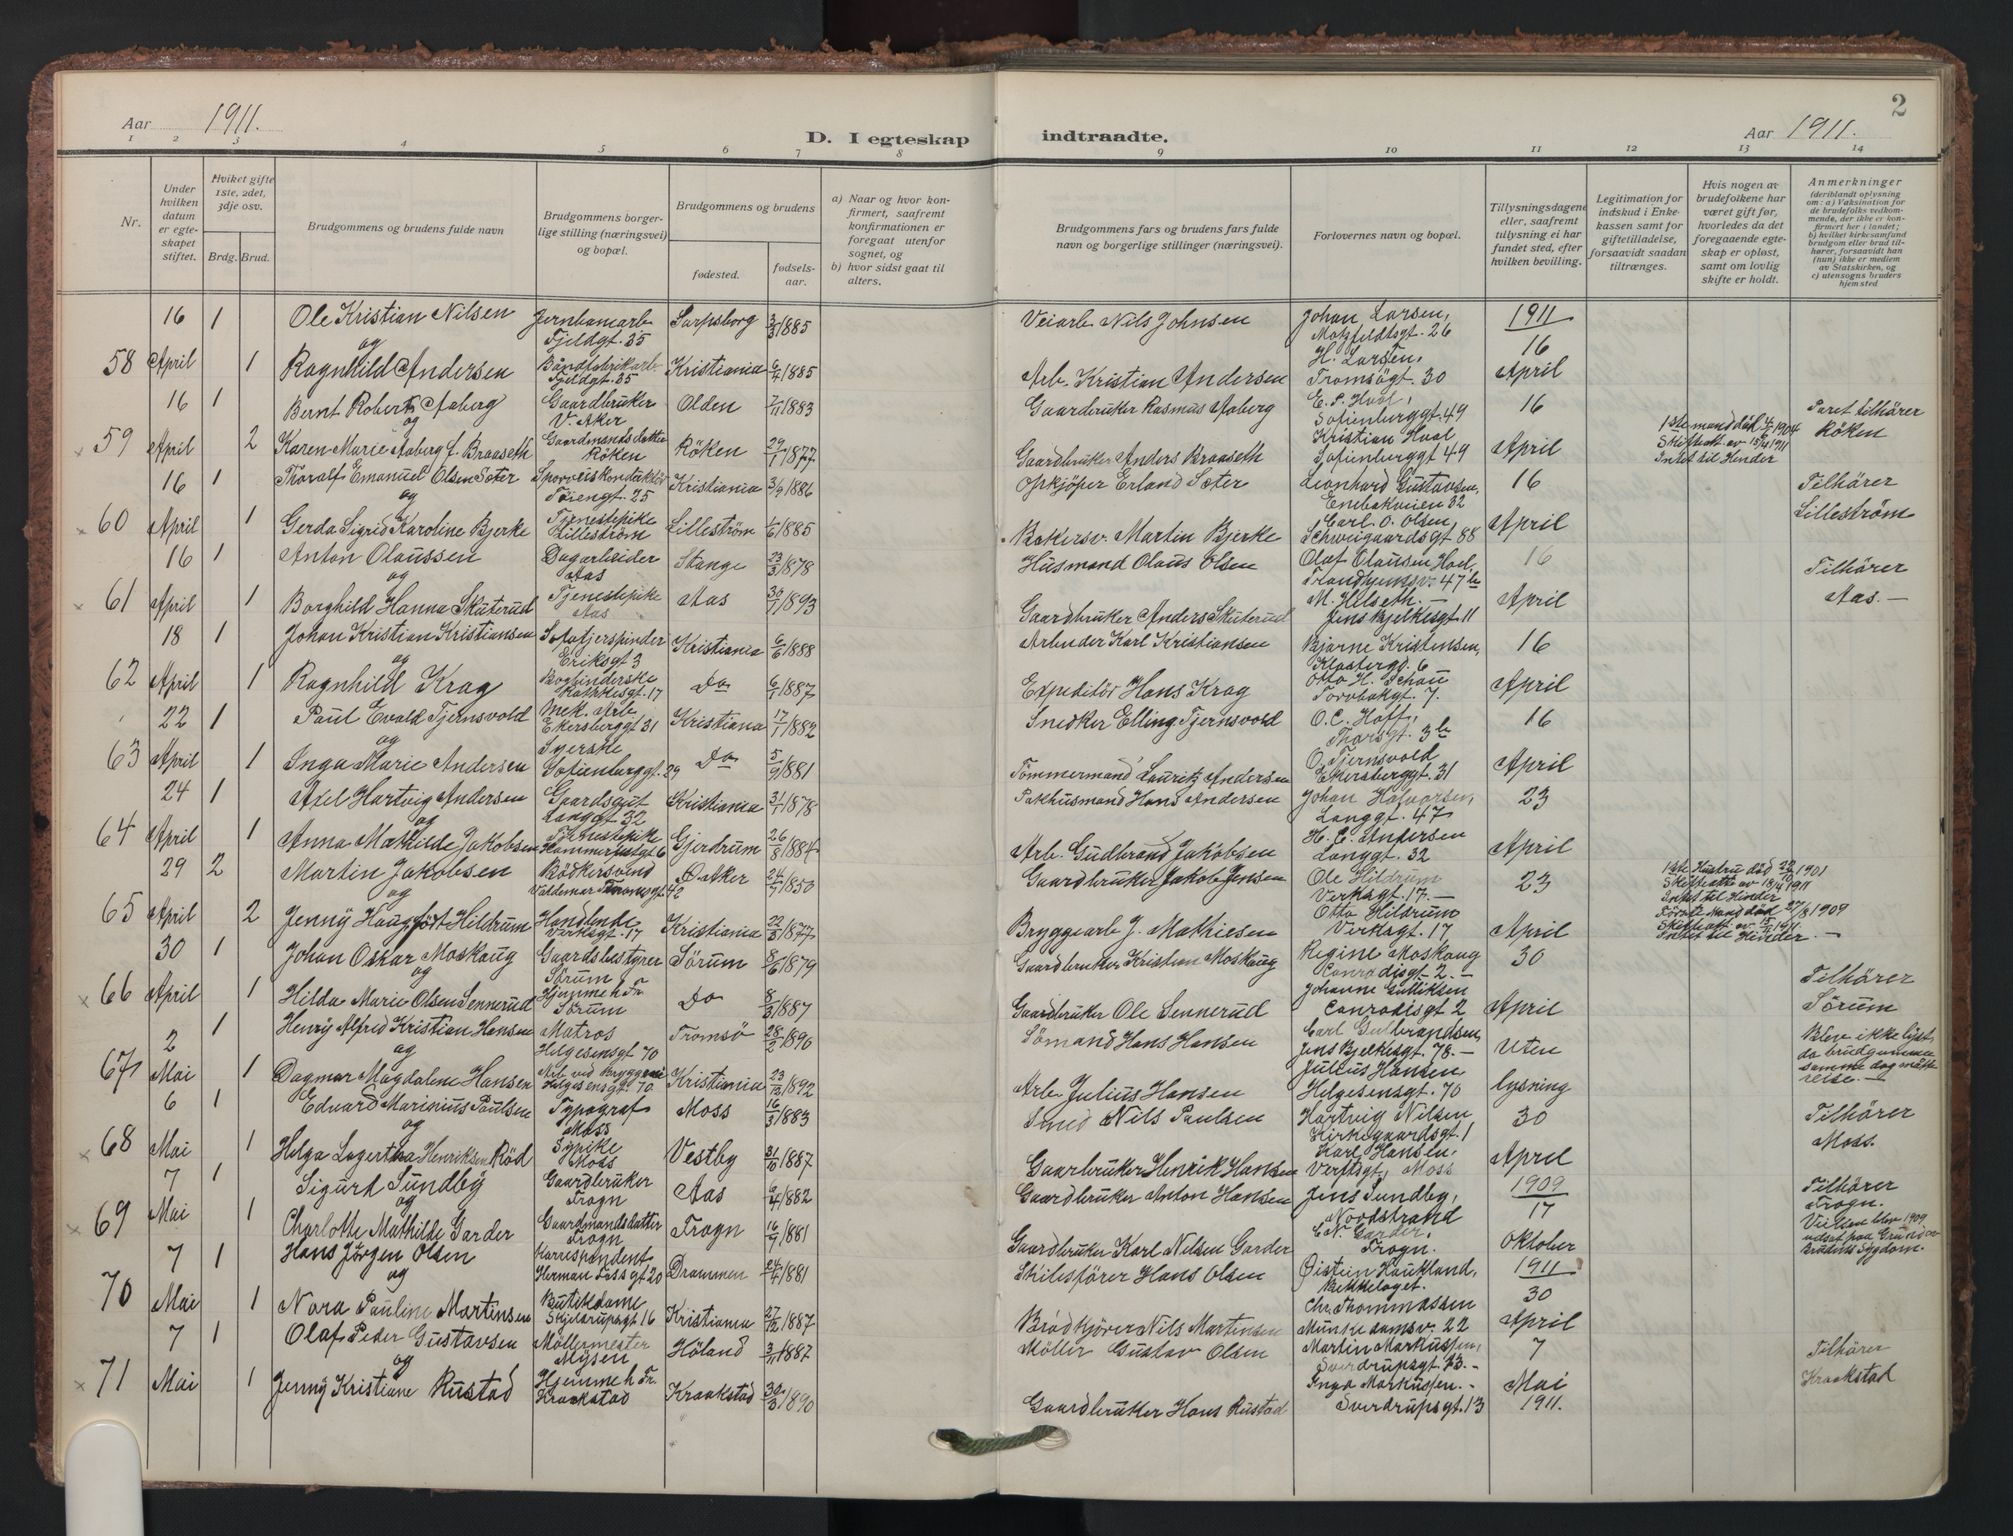 2
Aar 1911.
D. I egteskap indtraadte.
Aar 1911.
1 2 3 4 5 6 7 8 9 10 11 12 13 14
Nr.
Under hvilken datum er egteskapet stiftet.
Hviket gifte 1ste, 2det, 3dje osv.
Brdg. Brud.
Brudgommens og brudens fulde navn
Brudgommens borgerlige stilling (næringsvei) og bopæl.
Brudgommens og brudens
fødested.
fødselsaar.
a) Naar og hvor konfirmert, saafremt konfirmationen er foregaat utenfor sognet, og
b) hvor sidst gaat til alters.
Brudgommens fars og brudens fars fulde navn og borgerlige stillinger (næringsvei).
Forlovernes navn og bopæl.
Tillysningsdagene eller, saafremt tillysning ei har fundet sted, efter hvilken bevilling.
Legitimation for indskud i Enkekassen samt for giftetilladelse, forsaavidt saadan tiltrænges.
Hvis nogen av brudefolkene har været gift før, hvorledes da det foregaaende egteskap er opløst, samt om lovlig skifte er holdt.
Anmerkninger
(deriblandt oplysning om: a) Vaksination for de brudefolks vedkommende, der ikke er konfirmert her i landet; b) hvilket kirkesamfund brudgom eller brud tilhører, forsaavidt han (hun) ikke er medlem av Statskirken, og c) utensogns bruders hjemsted
58 16 April 1 Ole Kristian Nilsen Jernbanearb. Fjeldgt. 35 Sarpsborg 3/3 1885 Veiarb. Nils Johnsen Johan Larsen, Motzfeldtsgt. 26 1911
og
1 Ragnhild Andersen Baandfabrikarb. Fjeldgt. 35 Kristiania 6/4 1885 Arb. Kristian Andersen H. Larsen, Tromsögt. 30 16 April
59 16 April 1 Bernt Robert Aaberg Gaardbruker V. Aker Olden 7/11 1883 Gaardbruker Rasmus Aaberg E. P. Hval, Sofienberggt. 49 16
og
2 Karen Marie Aaberg f. Braaseth Gaardmandsdatter Röken Röken 29/1 1877 Gaardbruker Anders Braaseth Kristian Hval Sofienberggt 49 April
1ste mand död 1904 Skifteatt. av 1911 Intet til Hinder
Paret tilhörer Röken
60 16 April 1 Thoralf Emanuel Olsen Sæter Sporveiskonduktör Töiengt. 25 Kristiania 3/9 1886 Opkjöper Erland Sæter Leonhard Gustavsen, Enebakveien 32 16
og
1 Gerda Sigrid Karoline Bjerke Tjenestepike Lilleström Lilleström 1/6 1885 Bakersv. Martin Bjerke Carl. O. Olsen, Schweigaardsgt 88 April
Tilhörer Lilleström
61 16 April 1 Anton Olaussen Dagarbeider Aas Stange 23/3 1878 Husmand Olaus Olsen Olaf Olausen Hoel, 16
og
1 Borghild Hanna Skuterud Tjenestepike Aas Aas 30/7 1893 Gaardbruker Anders Skuterud M. Helseth. — Jens Bjelkesgt 11 April
Tilhörer Aas. —
62 18 April 1 Johan Kristian Kristiansen Eriksgt 3 Kristiania 6/6 1888 Arbeider Karl Kristiansen Bjarne Kristensen, Klostergd. 6 16
og
1 Ragnhild Krag Bogbinderske Rathkesgt. 17 Do 6/1 1887 Expeditör Hans Krag Otto H. Schau Torvbakgt. 7. April
63 22 April 1 Paul Evald Tjernsvold Mek. Arb. Ekersberggt 31 Kristiania 17/1 1882 Snedker Elling Tjernsvold O. C. Hoff, Thorsgt. 3b 16
og
1 Inga Marie Andersen Syerske Sofienberggt. 29 Do 5/9 1881 Tömmermand Lauritz Andersen O. Tjernsvold Ekersberggt. 31 April
64 24 April 1 Axel Hartvig Andersen Gaardsgut Langgt 32 Kristiania 31/1 1878 Pakhusmand Hans Andersen Johan Halvorsen, Langgt. 47 23
og
1 Anna Mathilde Jakobsen Tjenestepike Hammerfestgt 6 Gjerdrum 26/8 1884 Arb. Gudbrand Jakobsen H. C. Andersen Langgt. 32 April
65 29 April 2 Martin Jakobsen Bödkersvend Valdemar Thranesgt 42 Ø. Aker 24/7 1850 Gaardbruker Jakob Jensen Ole Hildrum Verksgt. 17. — 23
og
2 Jenny Haug födt Hildrum Handlende Verksgt. 17 Kristiania 22/3 1877 Bryggearb J. Mathiesen Otto Hildrum Verksgt. 17 April
1ste Hustru död 1901 Skifteatt. av 18/4 1911 Intet til Hinder Förste Mand död 27/8 1909 Skifteatt. av 1911. Intet til Hinder. —
66 30 April 1 Johan Oskar Moskaug Gaardsbestyrer Sörum Sörum 8/6 1879 Gaardbruker Kristian Moskaug Regine Moskaug Conradisgt 2. — 30
og
1 Hilda Marie Olsen Sennerud Hjemme h. Fr. Sörum Do 8/3 1887 Gaardbruker Ole Sennerud Johanne Conradisgt 2. April
Tilhörer Sörum
67 2 Mai 1 Henry Alfred Kristian Hansen Matros Helgesensgt 70 Tromsö 28/2 1890 Sömand Hans Hansen Carl Gulbrandsen, Jens Bjelkesgt. 78. — Uten
og
1 Dagmar Magdalene Hansen Arb. ved Bryggeri Helgesensgt. 70 Kristiania 23/12 1892 Arb. Julius Hansen Julius Hansen, Helgesensgt. 70 lysning
Blev ikke lyst da brudgommen samme dag mötte reise. —
68 6 Mai 1 Edvard Marinius Paulsen Typograf Moss Moss 16/3 1883 Smed Nils Paulsen Hartvig Nilsen Kirkegaardsgt. 1 30
og
1 Helga Lagertha Henriksen Röd Sypike Moss Vestby 31/10 1887 Gaarbruker Henrik Hansen Karl Hansen. Verftsgt, Moss April
Tilhörer Moss.
69 7 Mai 1 Sigurd Sundby Gaardbruker Frogn Aas 6/4 1882 Gaardbruker Anton Hansen Jens Sundby, Nordstrand 1909 17
og
1 Charlotte Mathilde Garder Gaardmandsdatter Frogn Frogn 16/9 1881 Gaardbruker Karl Nilsen Garder C. N. Garder, Frogn. Oktober
Tilhörer Frogn. Vielsen blev 1909 udsat paa Grund av Brudens Sygdom.
70 7 Mai 1 Hans Jörgen Olsen Korrespondent Herman Fossgt 20 Drammen 24/4 1881 Skibsförer Hans Olsen Öistein Haukland, Bækkelaget. 1911 30
og
1 Nora Pauline Martinsen Butikdame Skjeldrupsgt 16 Kristiania 27/12 1887 Brödkjörer Nils Martinsen Chr. Thommassen Munkedamsv. 22 April
71 7 Mai 1 Olaf Peder Gustavsen Möllermester Mysen Höland 3/11 1887 Möller Gustav Olsen Martin Markussen, Sverdrupsgt 13. — 7
og
1 Jenny Kristiane Rustad Hjemme h. Fr. Kraakstad Kraakstad 30/3 1890 Gaardbruker Hans Rustad Inga Markussen. — Sverdrupsgt. 13 Mai 1911.
Tilhörer Kraakstad